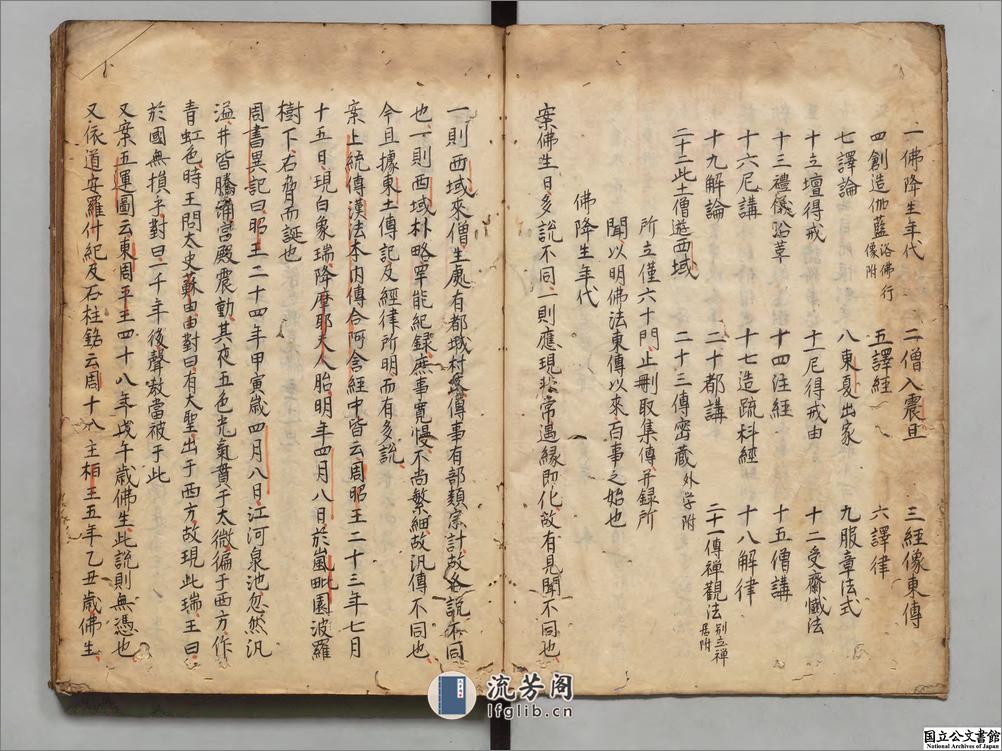 一佛降生年代　二僧入震旦　三經像東傳
四創造伽藍浴佛行像附　五譯經　六譯律
七譯論　八東夏出家　九服章法式
十立壇得戒　十一尼得戒由　十二受齋懴法
十三禮儀㳂革　十四注經　十五僧講
十六尼講　十七造疏科經　十八解律
十九解論　二十都講　二十一傳禪觀法別立禅居附
二十二此土僧遊西域　二十三傳密藏外学附
所立僅六十門止刪取集傳并録所
聞以明佛法東傳以來百事之始也
佛降生年代
案佛生日多說不同一則應現非常遇緣即化故有見聞不同也
一則西域來僧生處有都城村落傳事有部類宗計故各說不同
也一則西域朴略罕能紀録庶事寬慢不尚繁細故汎傳不同也
今且據東土傳記及經律所明而有多說
案上統傳漢法本内傳合阿含經中皆云周昭王二十三年七月
十五日現白象瑞降摩耶夫人胎明年四月八日於嵐毗園波羅
樹下右脅而誕也
周書異記曰昭王二十四年甲寅歲四月八日江河泉池忽然汎
溢井皆騰涌宮殿震動其夜五色光氣貫于太微徧于西方作
青虹色時王問太史蘇由由對曰有大聖出于西方故現此瑞王曰
於國無損乎對曰一千年後聲教當被于此
又案五運圖云東周平王四十八年戊午歲佛生此說則無憑也
又依道安羅什紀及石柱銘云周十八主桓王五年乙丑歲佛生
流芳阁
lfglib.cn
国立公文書館
National Archives of Japan